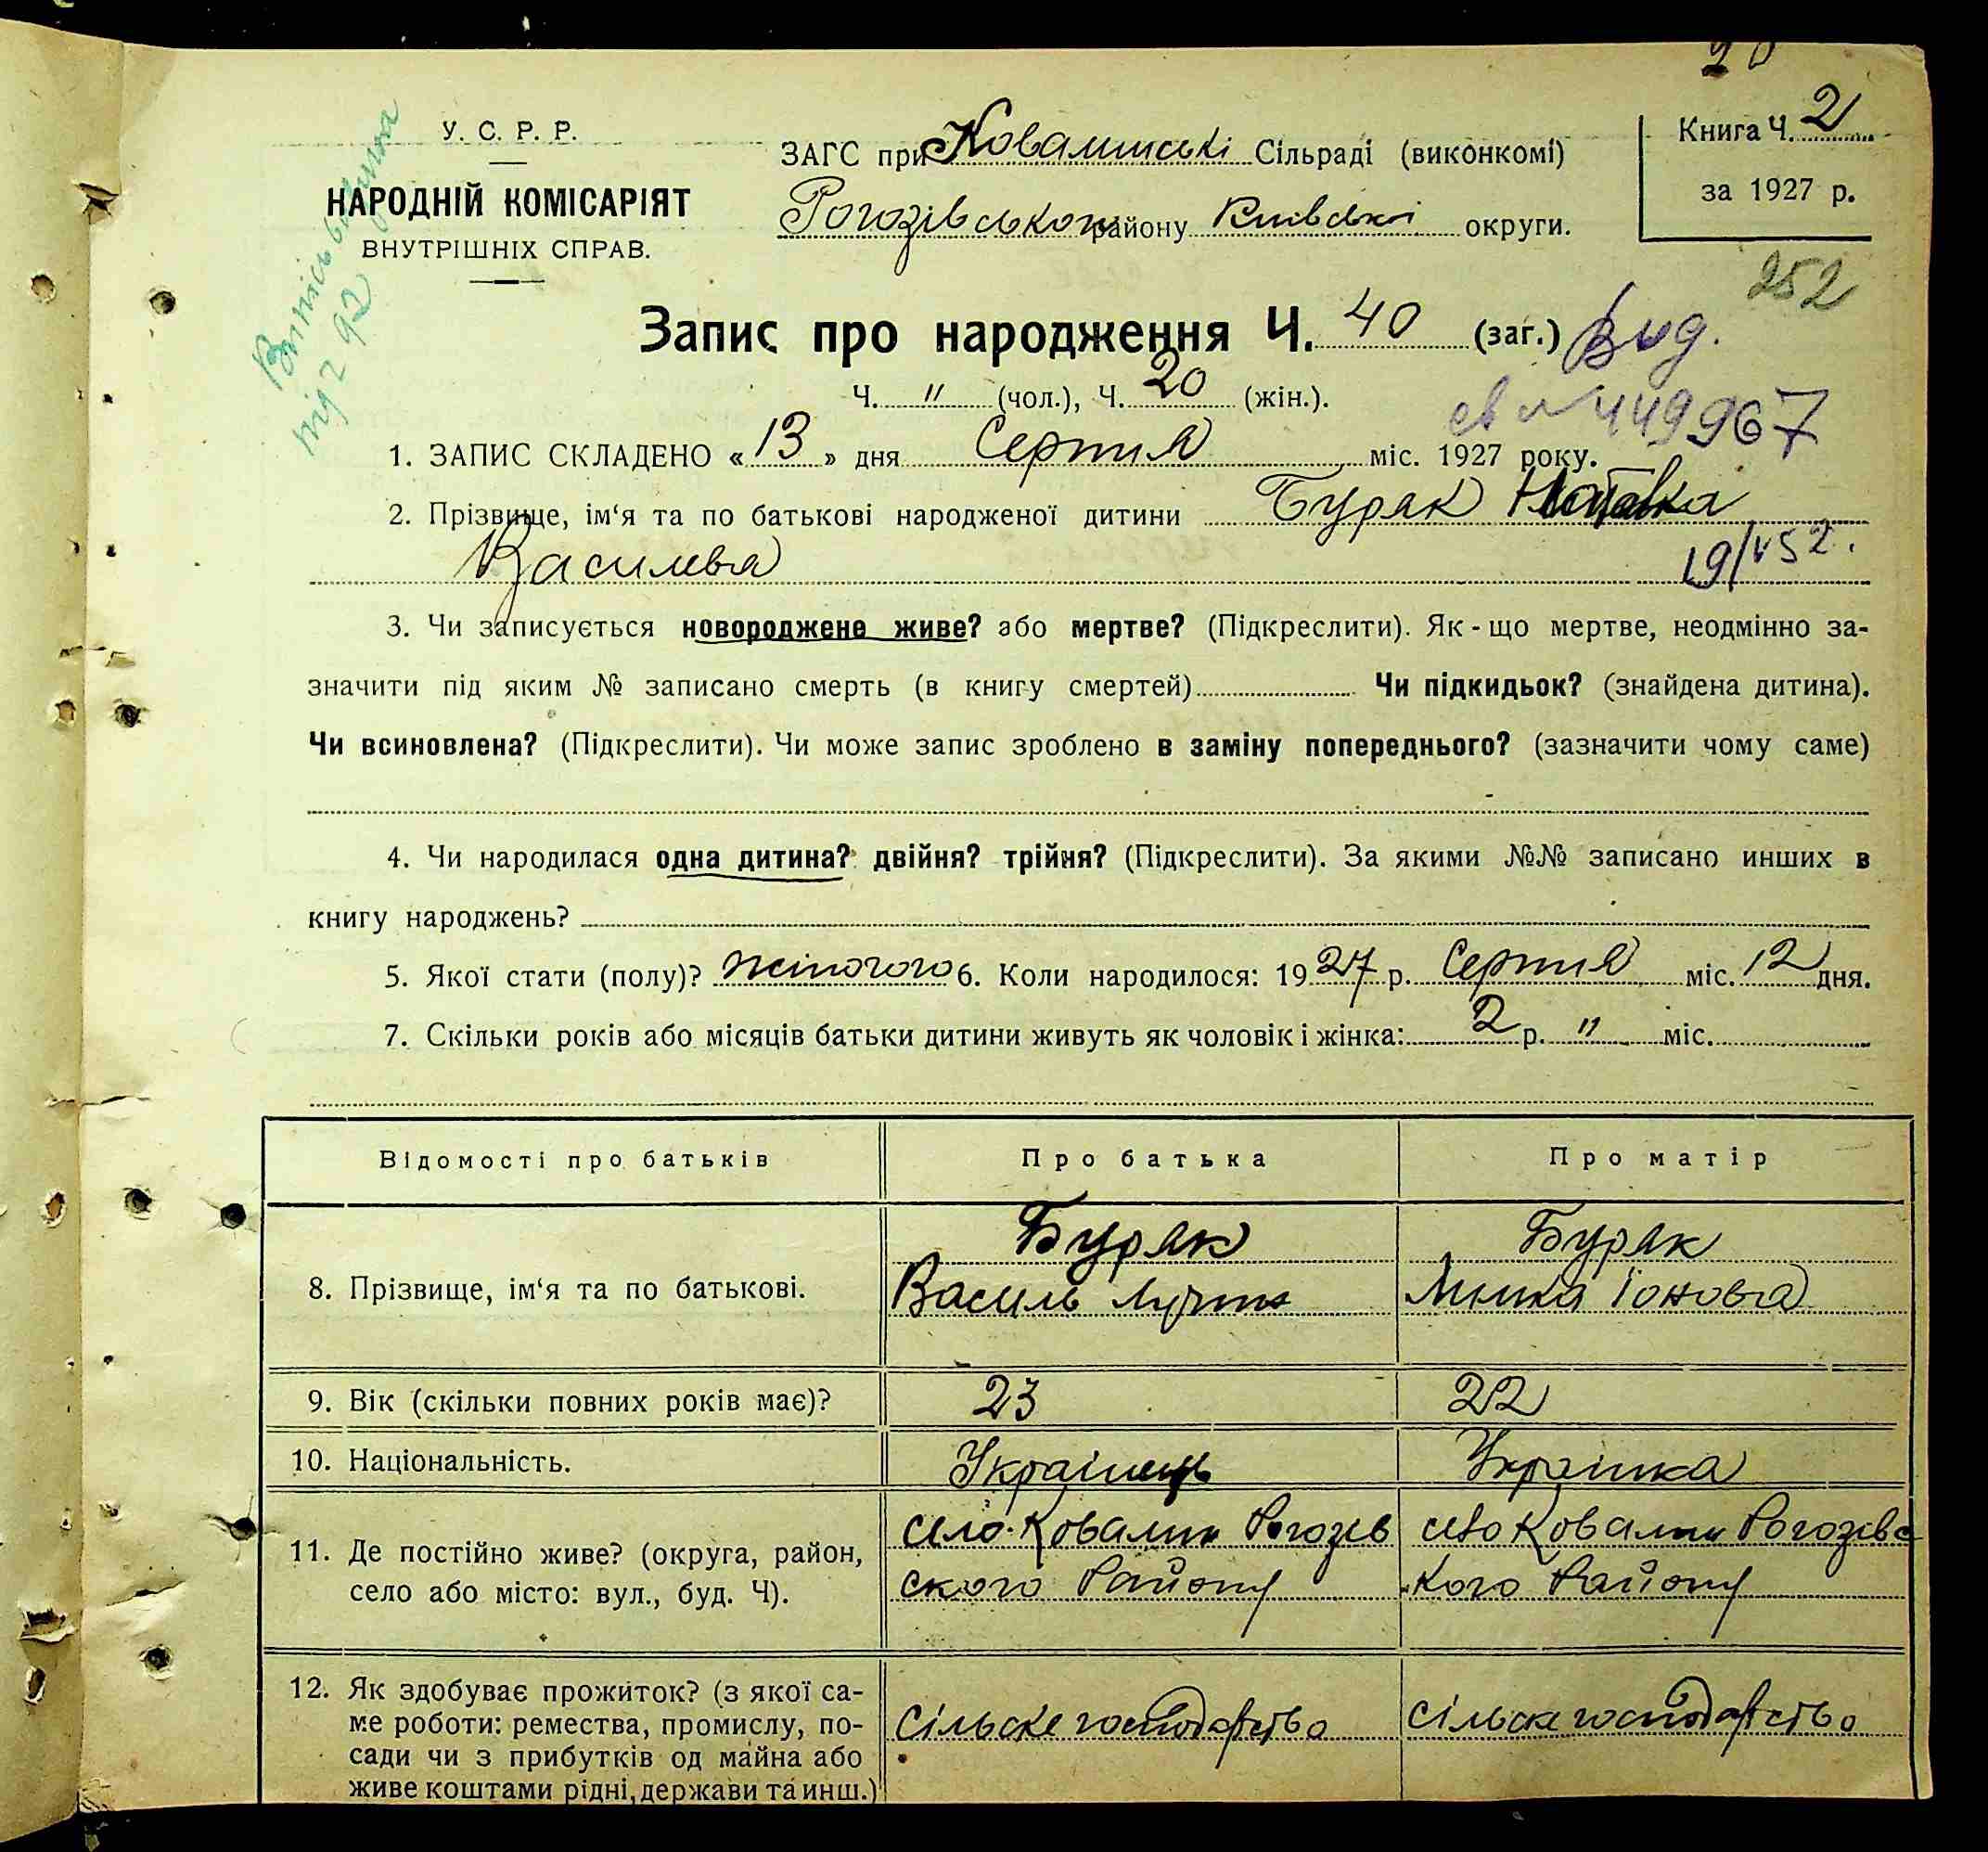 20
У. С. Р. Р.
НАРОДНІЙ КОМІСАРІЯТ
ВНУТРІШНІХ СПРАВ.
ЗАГС при Ковалинські Сільраді (виконкомі)
Рогозівського району Київської округи.
Книга Ч. 2
за 1927 р.
252
під 92
Запис про народження Ч. 40 (заг.) Вид.
Ч. " (чол.), Ч. 20 (жін.).
св № 449967
1. ЗАПИС СКЛАДЕНО « 13 » дня Серпня міс. 1927 року.
2. Прізвище, ім‘я та по батькові народженої дитини Буряк
Василева 19/V 52.
3. Чи записується новороджене живе? або мертве? (Підкреслити). Як-що мертве, неодмінно за-
значити під яким № записано смерть (в книгу смертей) Чи підкидьок? (знайдена дитина).
Чи всиновлена? (Підкреслити). Чи може запис зроблено в заміну попереднього? (зазначити чому саме)
4. Чи народилася одна дитина? двійня? трійня? (Підкреслити). За якими №№ записано инших в
книгу народжень?
5. Якої стати (полу)? жіночого 6. Коли народилося: 1927 р. Серпня міс. 12 дня.
7. Скільки років або місяців батьки дитини живуть як чоловік і жінка: 2 р. " міс.
Відомості про батьків Про батька Про матір
8. Прізвище, ім‘я та по батькові. Буряк Василь Буряк Йонова
9. Вік (скільки повних років має)? 23 22
10. Національність. Українець Українка
11. Де постійно живе? (округа, район, село або місто: вул., буд. Ч). село Ковалин Рогозів ского Району село Ковалин Рогозівс кого Району
12. Як здобуває прожиток? (з якої са-
ме роботи: ремества, промислу, по-
сади чи з прибутків од майна або
живе коштами рідні, держави та инш.)
сільске господарство сільске господарство